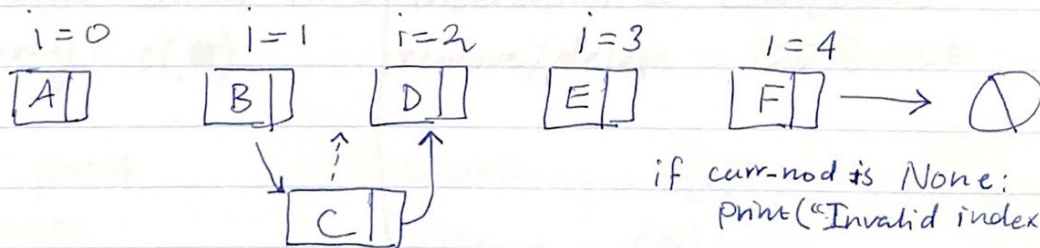 i=0 i=1 i=2 i=3 i=4
A B D E F
C
if curr-nod is None:
print("Invalid index